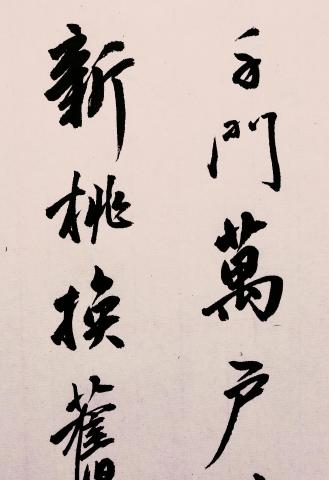 千門萬戶
新桃換舊